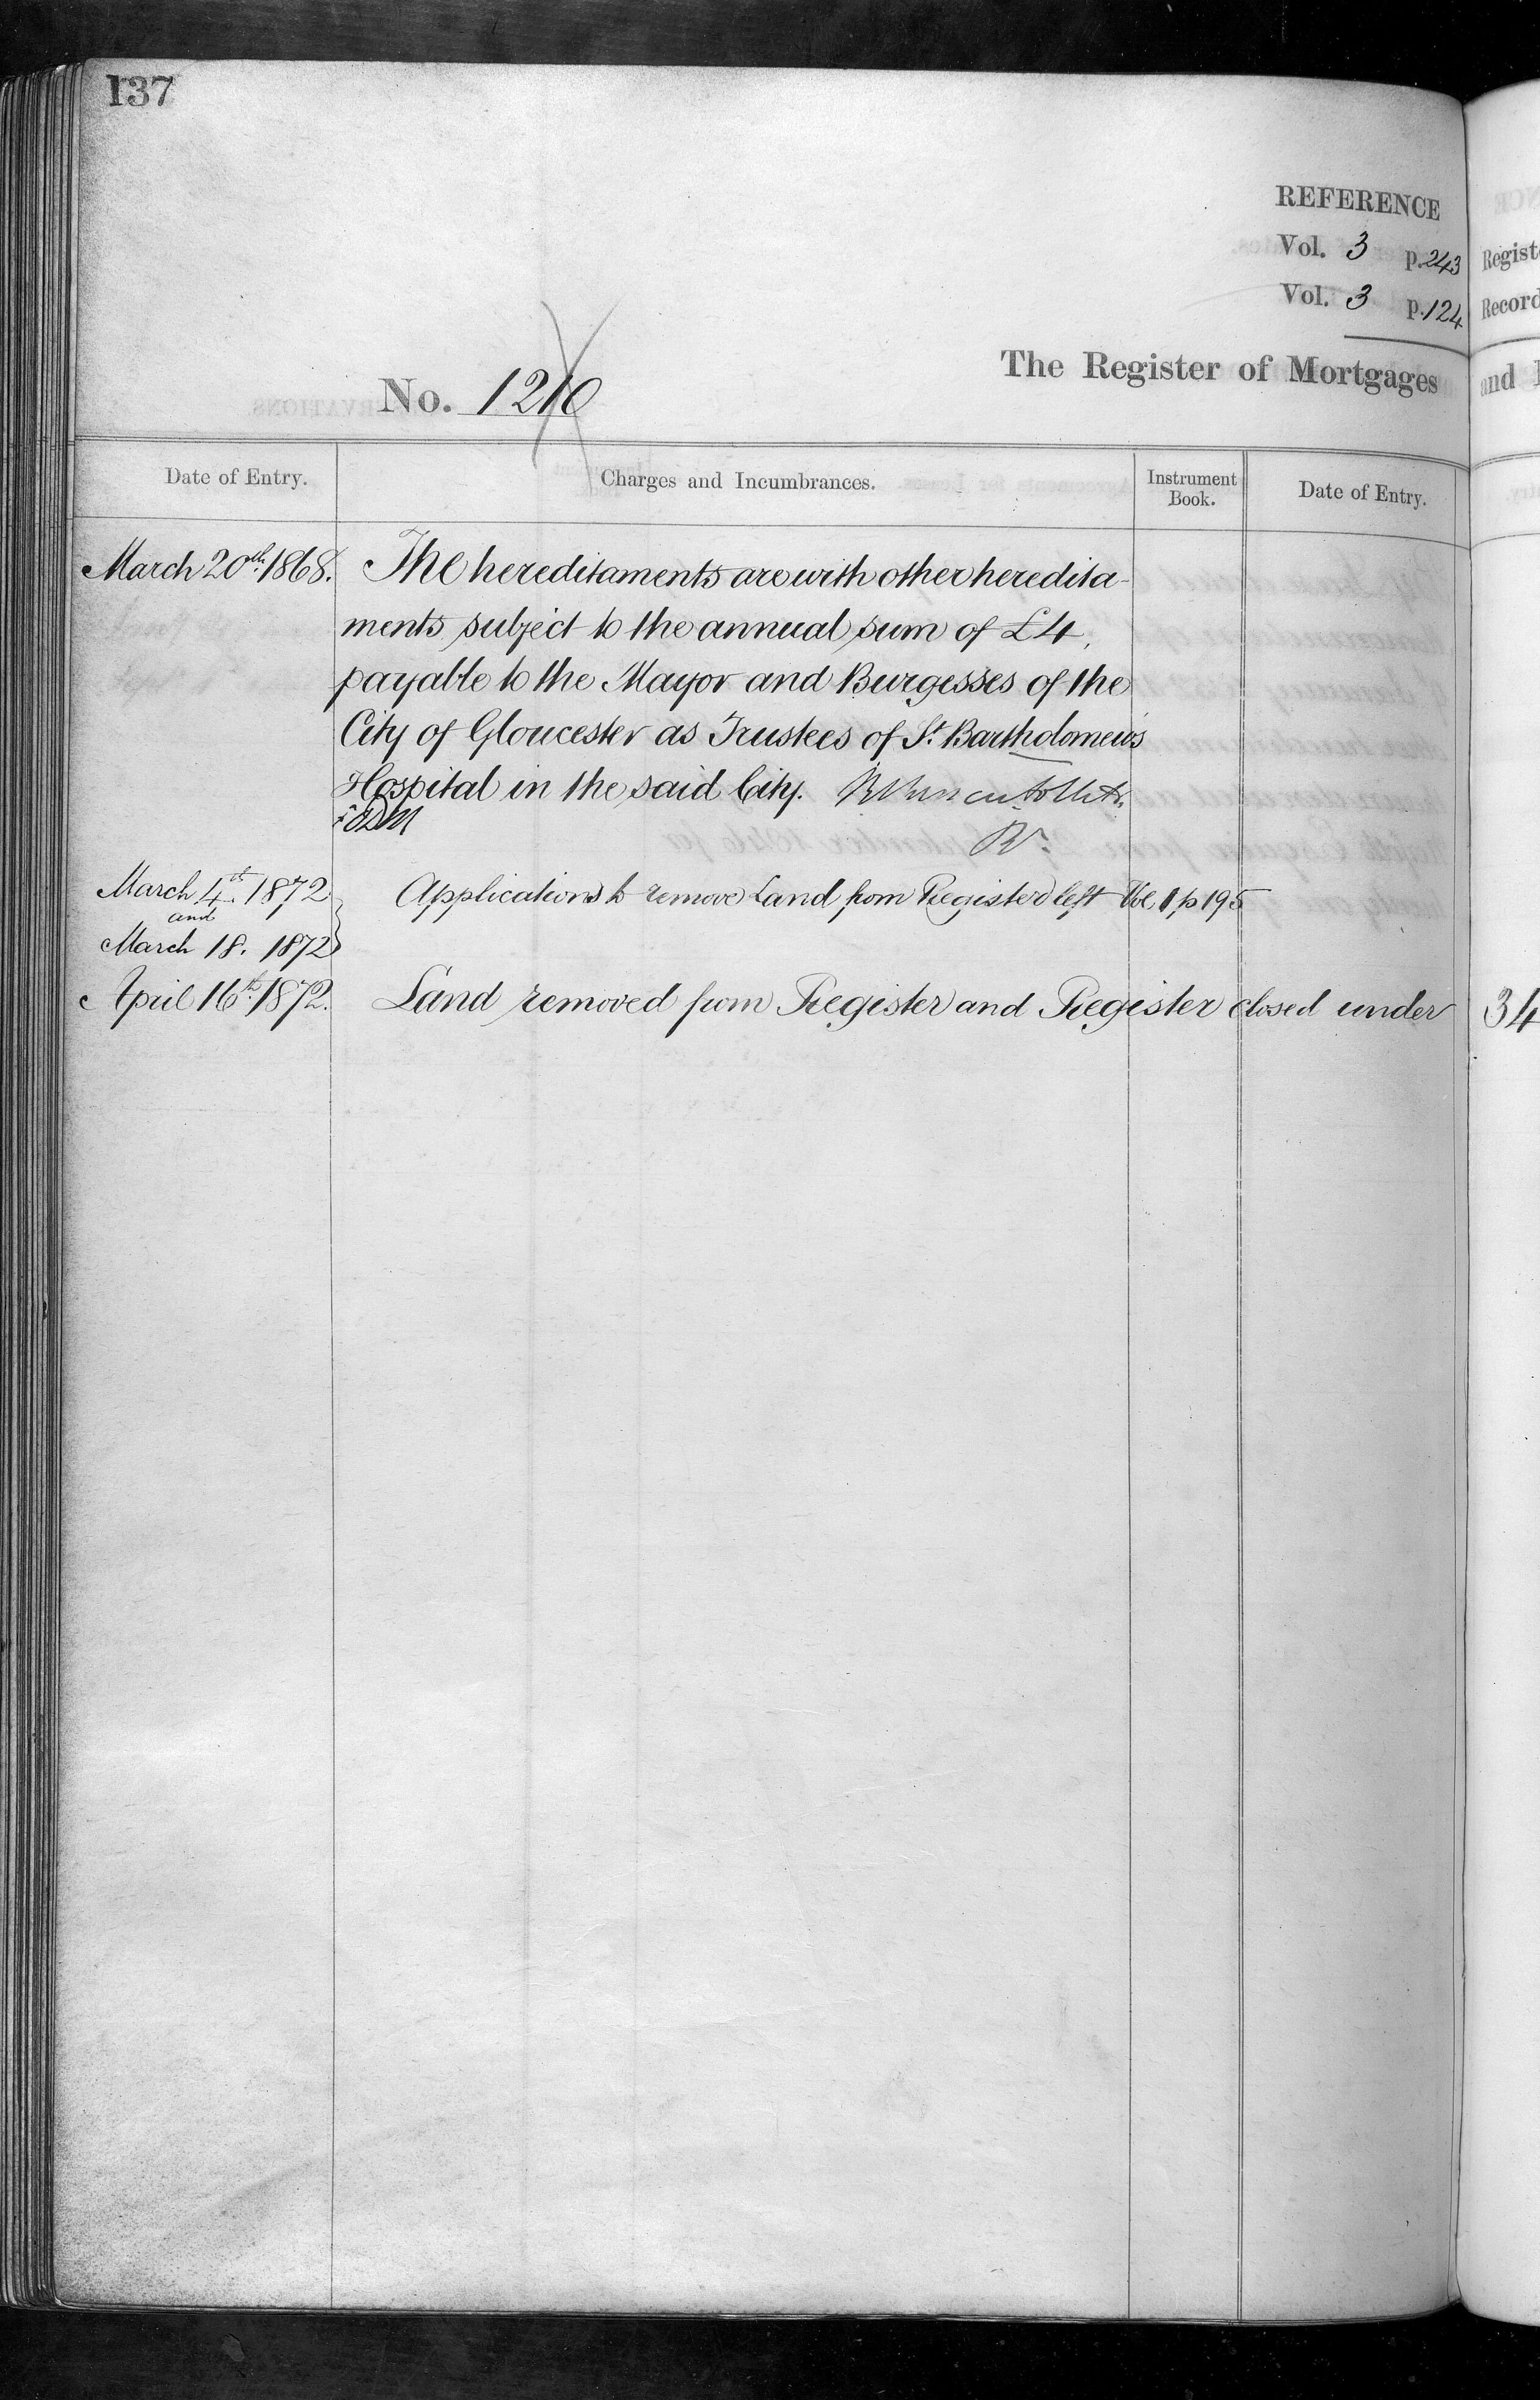 137
REFERENCE
Vol. 3 p. 243
Vol. 3 p. 124
Regist
Record
No. 1210
The Register of Mortgages
and
Date of Entry.
Charges and Incumbrances.
Instrument
Book.
Date of Entry.
March 20th. 1868.
The hereditaments are with other heredita-
ments subject to the annual sum of £4,
payable to the Mayor and Burgesses of the
City of Gloucester as Trustees of St. Bartholomew's
Hospital in the said City.
March 4th. 1872
and
March 18. 1872
Applications to remove Land from Register left Vol 1 p 195
April 16th. 1872.
Land removed from Register and Register closed under 34